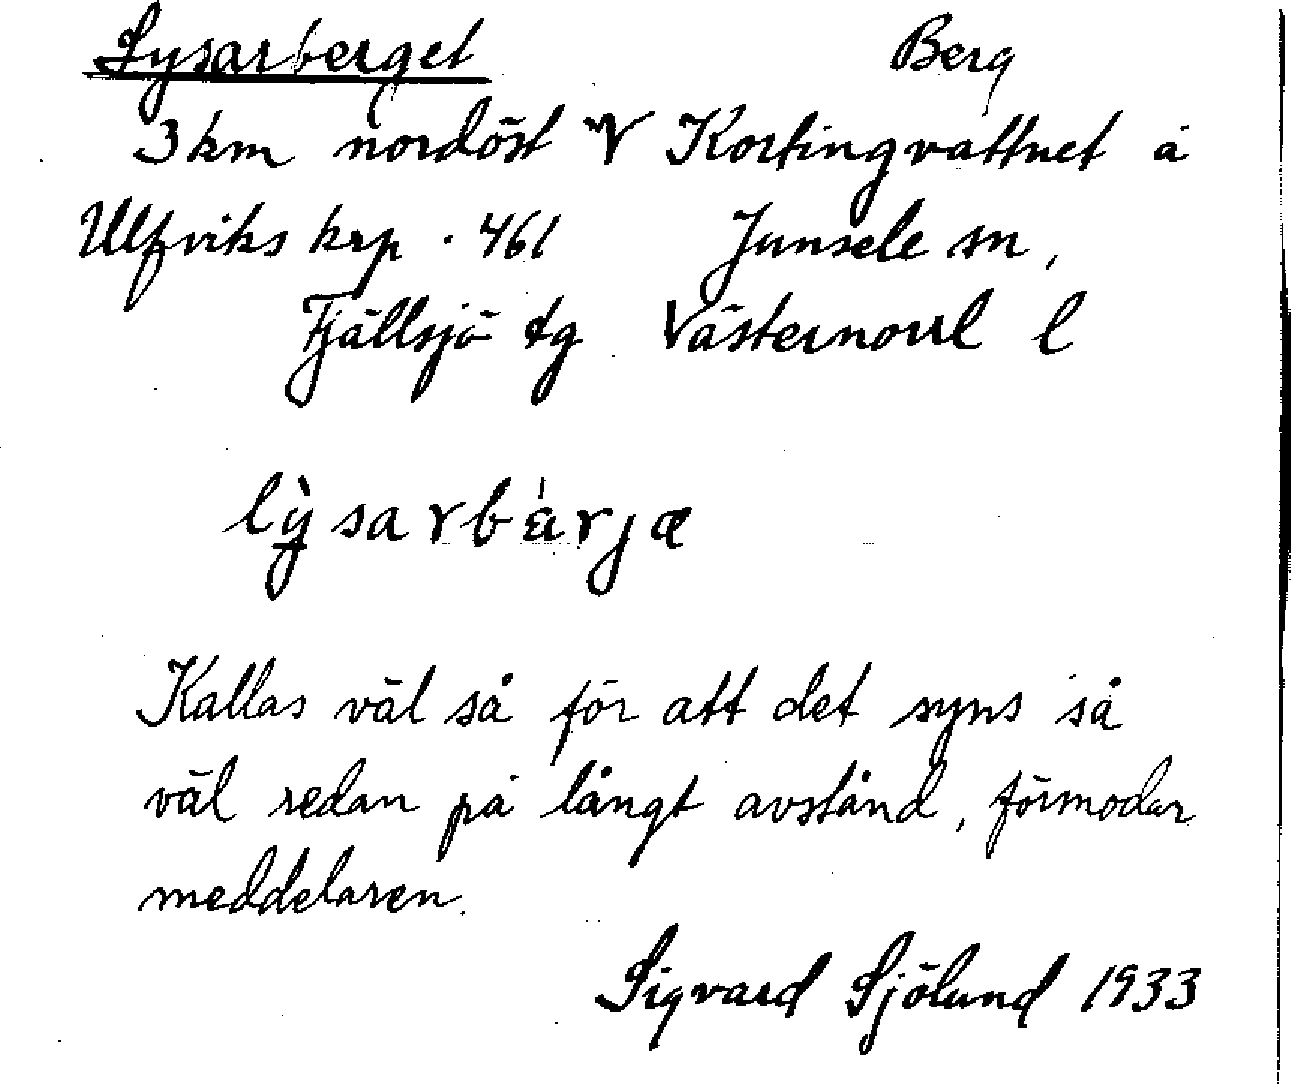 Lysarberget Berg
3 km nordöst V Kortingvattnet å
Ulfviks krp. 461 Junsele sn,
Fjällsjö tg Västernorrl l
lỳsarbä́rjæ
Kallas väl så för att det syns så
väl redan på långt avstånd, förmodar
meddelaren.
Sigvard Sjölund 1933